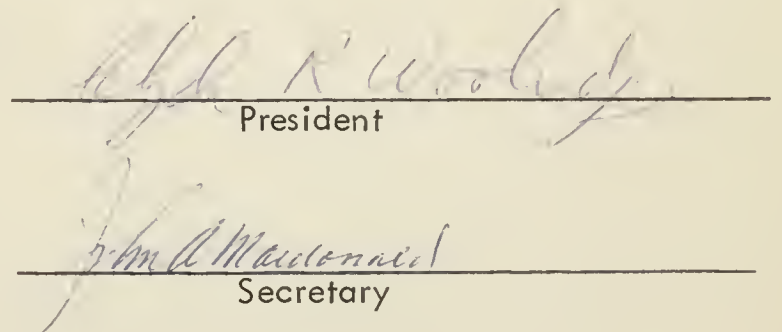 K
President
John A Macdonald
Secretary